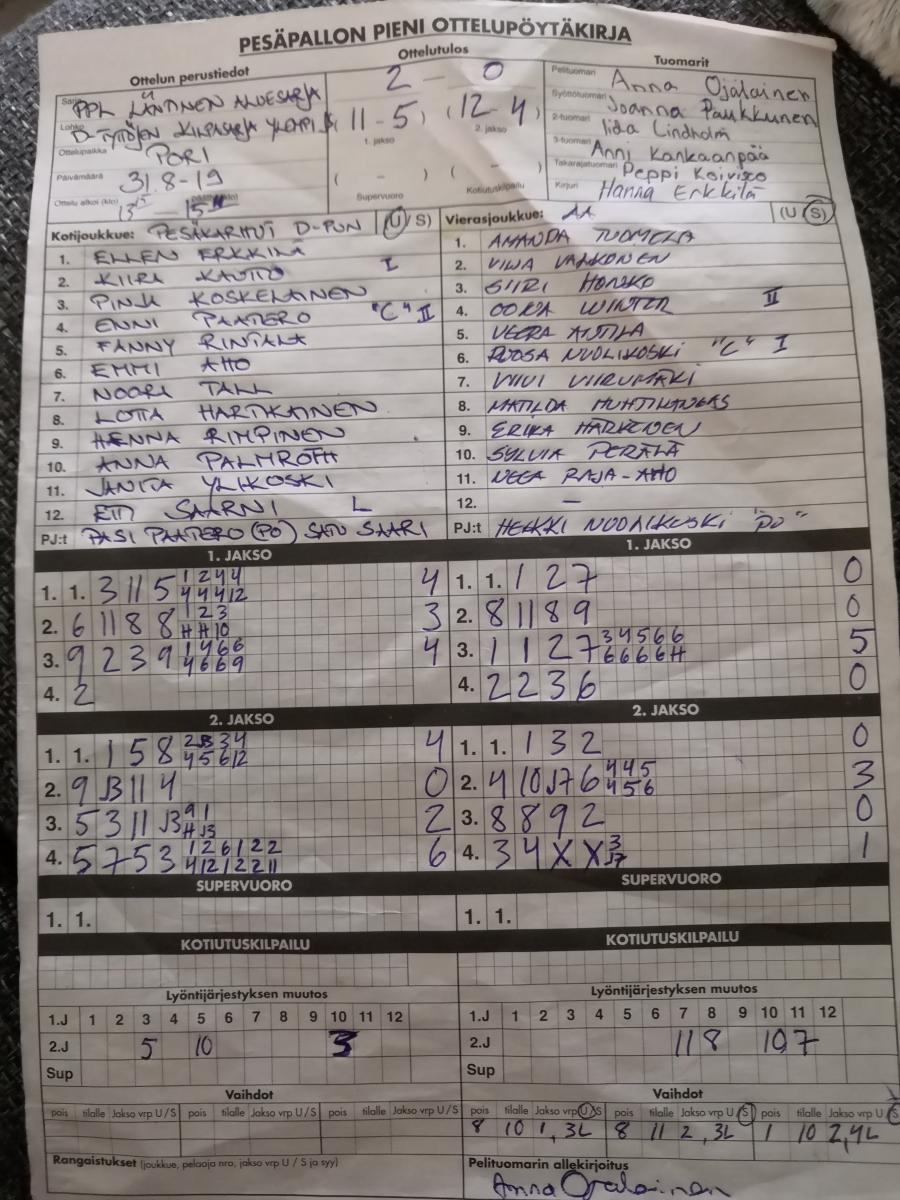 PESÄPALLON PIENI OTTELUPÖYTÄKIRJA
Ottelun perustiedot
Ottelutulos
Tuomarit
Sarja PPL LÄNTINEN ALUESARJA
Lohko D-TYTTÖJEN KILPASARJA
Ottelupaikka PORI
Päivämäärä 31.8-19
Ottelu alkoi (klo) 13 15 — 15
2 — 0
(11 - 5) (12 - 4)
1. jakso 2. jakso
( - ) ( - )
Supervuoro Kotiutuskilpailu
Pelituomari Anna Ojalainen
Syöttötuomari Joanna Paukkunen
2-tuomari Iida Lindholm
3-tuomari Anni Kankaanpää
Takarajatuomari Peppi Koivisto
Kirjuri Hanna Erkkilä
Kotijoukkue: PESÄKARHUT D-PUN (U/S)
1. ELLEN ERKKILÄ
2. KIIRA KAUTTO I
3. PINJA KOSKELAINEN
4. ENNI PAATERO "C" II
5. FANNY RINTALA
6. EMMI AHO
7. NOORA TALL
8. LOTTA HARTIKAINEN
9. HENNA RIMPINEN
10. ANNA PALMROTH
11. JANITA YLIKOSKI
12. SAARNI L
PJ:t PASI PAATERO (PO) SATU SAARI
Vierasjoukkue: AA (U/S)
1. AMANDA TUOMELA
2. VILJA VALKONEN
3. SIIRI HONKO
4. OONA WINTER II
5. VEERA ATTILA
6. ROOSA NUOLIKOSKI "C" I
7. VIIVI VIIRUMÄKI
8. MATILDA HUHTIKANGAS
9. ERIKA HÄRKÖNEN
10. SYLVIA PERÄLÄ
11. NEEA RAJA-AHO
12. —
PJ:t HEIKKI NUOLIKOSKI "PO"
1. JAKSO
1. 1. 3 11 5 1 2 4 4 4
4 4 4 12
2. 6 11 8 8 1 2 3 3
H H 10
3. 9 2 3 9 1 4 6 6 4
4 6 6 9
4. 2
1. JAKSO
1. 1. 1 2 7 0
2. 8 11 8 9 0
3. 1 1 2 7 3 4 5 6 6 5
6 6 6 6 H
4. 2 2 3 6 0
2. JAKSO
1. 1. 1 5 8 2 J3 3 4 4
4 5 6 12
2. 9 J3 11 4 0
3. 5 3 11 J3 9 1 2
H J3
4. 5 7 5 3 1 2 6 12 2 6
4 12 12 2 11
2. JAKSO
1. 1. 1 3 2 0
2. 4 10 J7 6 4 4 5 3
4 5 6
3. 8 8 9 2 0
4. 3 4 X X 3 1
J7
SUPERVUORO
1. 1.
SUPERVUORO
1. 1.
KOTIUTUSKILPAILU
KOTIUTUSKILPAILU
Lyöntijärjestyksen muutos
1.J 1 2 3 4 5 6 7 8 9 10 11 12
2.J 5 10 3
Sup
Lyöntijärjestyksen muutos
1.J 1 2 3 4 5 6 7 8 9 10 11 12
2.J 11 8 10 7
Sup
Vaihdot
pois tilalle Jakso vrp U/S pois tilalle Jakso vrp U/S pois tilalle Jakso vrp U/S
Vaihdot
pois tilalle Jakso vrp U/S pois tilalle Jakso vrp U/S pois tilalle Jakso vrp U/S
8 10 1, 3L 8 11 2, 3L 1 10 2,4L
Rangaistukset (joukkue, pelaaja nro, jakso vrp U / S ja syy)
Pelituomarin allekirjoitus
Anna Ojalainen